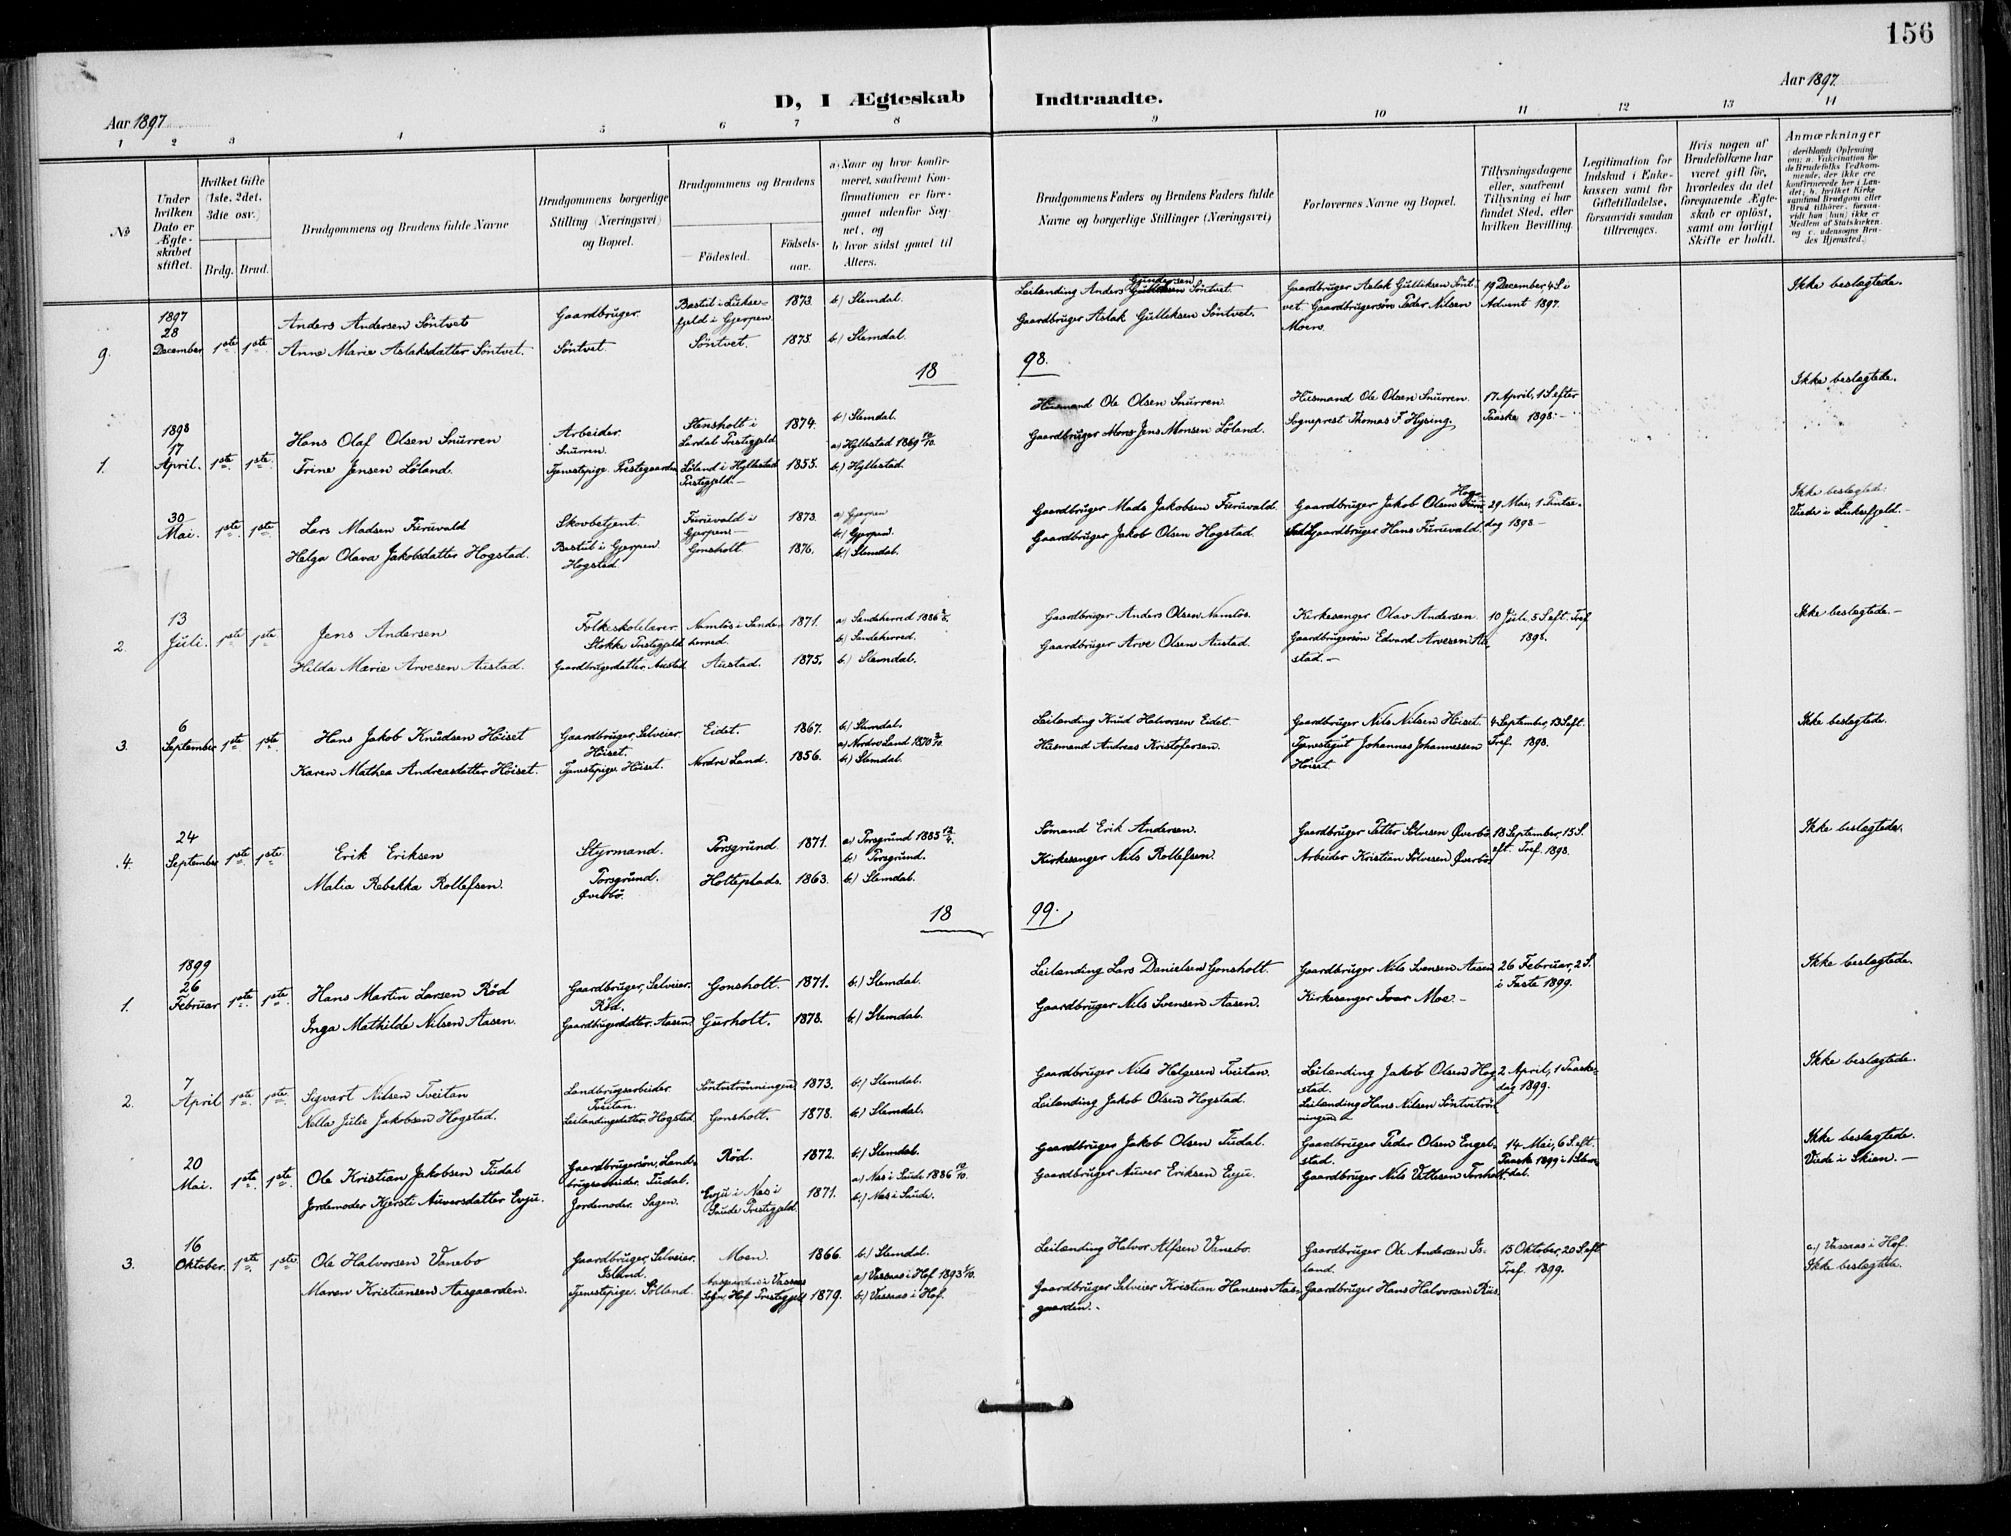 156
Aar 1897
Aar 1897.
D, I Ægteskab Indtraadte.
1 2 3 4 5 6 7 8 9 10 11 12 13 14
No
Under hvilken Dato er Ægteskabet stiftet.
Hvilket Gifte (1ste, 2det, 3die osv.)
Brdg. Brud.
Brudgommens og Brudens fulde Navne
Brudgommens borgerlige Stilling (Næringsvei) og Bopæl.
Brudgommens og Brudens
Fødested.
Fødselsaar.
a) Naar og hvor konfirmeret, saafremt Konfirmationen er foregaaet udenfor Sognet, og
b) hvor sidst gaaet til Alters.
Brudgommens Faders og Brudens Faders fulde Navne og borgerlige Stillinger (Næringsvei)
Forlovernes Navne og Bopæl.
Tillysningsdagene eller, saafremt Tillysning ei har fundet Sted, efter hvilken Bevilling.
Legitimation for Indskud i Enkekassen samt for Giftetilladelse, forsaavidt saadan tiltrænges.
Hvis nogen af Brudefolkene har været gift før, hvorledes da det foregaaende Ægteskab er opløst, samt om lovligt Skifte er holdt.
Anmærkninger
9. 1897 28 December 1ste 1ste
Anders Andersen Söntvet Gaardbruger. Bestul i Luksefjeld i Gjerpen 1873. b) Slemdal. Leilending Anders Gundersen Söntvet Gaardbruger Aslak Gulliksen Söntvet. Gaardbrugersön Peder Nilsen Moen. 19 December, 4 S i Advent 1897. Ikke beslagtede.
Anne Marie Aslaksdatter Söntvet. Söntvet. Söntvet. 1875. b) Slemdal. Gaardbruger Aslak Gulliksen Söntvet.
18 98.
1. 1898 17 April. 1ste 1ste
Hans Olaf Olsen Snurren Arbeider. Snurren. Stensholt i Lardal Prestegjeld 1874. b) Slemdal. Husmand Ole Olsen Snurren. Husmand Ole Olsen Snurren. 17 April, 1 S. efter Paaske 1898. Ikke beslagtede.
Trine Jensen Löland. Tjenestepige. Prestegaarden Löland i Hyllestad Prestegjeld. 1855. a) Hyllestad 1869 b) Hyllestad. Gaardbruger Mons Jens Monsen Löland. Sogneprest Thomas F. Hysing.
30 Mai. 1ste 1ste
Lars Madsen Furuvald Skovbetjent. Bestul i Gjerpen. Furuvald i Gjerpen. 1873. a) Gjerpen b) Gjerpen. Gaardbruger Mads Jakobsen Furuvald. Gaardbruger Jakob Olsen Hogstad 29 Mai, 1 Pintsedag 1898. Ikke beslagtede. Viede i Luksefjeld.
Helga Olava Jakobsdatter Hogstad. Hogstad. Gonsholt. 1876. b) Slemdal. Gaardbruger Jakob Olsen Hogstad. Gaardbruger Hans Furuvald.
2. 13 Juli. 1ste 1ste
Jens Andersen Folkeskolelærer Stokke Prestegjeld Namlös i Sandeherred. 1871. a) Sandeherred 1886 b) Sandeherred. Gaardbruger Anders Olsen Namlös. Kirkesanger Olav Andersen. 10 Juli. 5 S. eft. Tref 1898. Ikke beslagtede.
Hilda Marie Arvesen Austad. Gaardbrugerdatter. Austad Austad. 1875. b) Slemdal. Gaardbruger Arve Olsen Austad. Gaardbrugersön Edvard Arvesen Austad.
3. 6 September 1ste 1ste
Hans Jakob Knudsen Höiset Gaardbruger, Selveier. Höiset. Eidet. 1867. b) Slemdal. Leilending Knud Halvorsen Eidet. Gaardbruger Nils Nilsen Höiset. 4 September, 13 S. eft. Tref. 1898. Ikke beslagtede.
Karen Mathea Andreasdatter Höiset. Tjenestepige. Höiset. Nordre Land. 1856. a) Nordre Land 1870 b) Slemdal. Husmand Andreas Kristofersen. Tjenestegut Johannes Johannessen Höiset.
4. 24 September 1ste 1ste
Erik Eriksen Styrmand. Porsgrund. Porsgrund 1871. a) Porsgrund 1885 b) Porsgrund. Sömand Erik Andersen. Gaardbruger Petter Sölvesen Øverbö 18 September, 15 S. eft. Tref. 1898. Ikke beslagtede.
Malia Rebekka Rollefsen. Øverbö. Holteplads. 1863. b) Slemdal. Kirkesanger Nils Rollefsen. Arbeider Kristian Sölvesen Øverbö
18 99.
1. 1899 26 Februar 1ste 1ste
Hans Martin Larsen Röd Gaardbruger, Selveier. Röd. Gonsholt. 1871. b) Slemdal. Leilending Lars Danielsen Gonsholt. Gaardbruger Nils Svensen Aasen 26 Februar, 2 S. i Faste 1899. Ikke beslagtede.
Inga Mathilde Nilsen Aasen. Gaardbrugerdatter. Aasen. Gurholt. 1878. b) Slemdal. Gaardbruger Nils Svensen Aasen. Kirkesanger Ivar Moe.
2. 7 April 1ste 1ste
Sigvart Nilsen Tveitan Landbrugsarbeider. Tveitan. Söntvetrönningen 1873. b) Slemdal. Gaardbruger Nils Helgesen Tveitan. Leilending Jakob Olsen Hogstad. 2 April, 1 Paaskedag 1899. Ikke beslagtede.
Nella Julie Jakobsen Hogstad. Leilendingsdatter. Hogstad. Gonsholt. 1878. b) Slemdal. Leilending Jakob Olsen Hogstad. Leilending Hans Nilsen Söntvetrönningen
20 Mai. 1ste 1ste
Ole Kristian Jakobsen Tudal Gaardbrugersön, Landbrugsarbeider. Tudal. Röd. 1872. b) Slemdal. Gaardbruger Jakob Olsen Tudal. Gaardbruger Peder Olsen Engelstad. 14 Mai, 6 S. eft. Paaske 1899 i Slemdal. Ikke beslagtede. Viede i Skien.
Jordemoder Kjersti Auversdatter Evju. Jordemoder. Sagen. Evju i Nes i Saude Prestegjeld. 1871. a) Nes i Saude 1886 b) Nes i Saude. Gaardbruger Auver Eriksen Evju. Gaardbruger Nils Vetlesen Tornholt.
3. 16 Oktober. 1ste 1ste
Ole Halvorsen Vanebo Gaardbruger, Selveier. Island. Moen. 1866. b) Slemdal. Leilending Halvor Alfsen Vanebo. Gaardbruger Ole Andersen Island. 15 Oktober, 20 S. eft. Tref. 1899. c) Vassaas i Hof. Ikke beslagtede.
Maren Kristiansen Aasgaarden. Tjenestepige. Sölland Aasgaarden i Vassaas Sogn, Hof Prestegjeld 1879. a) Vassaas i Hof 1893 b) Vassaas i Hof. Gaardbruger Selveier Kristian Hansens Aasgaarden. Gaardbruger Hans Halvorsen Riis